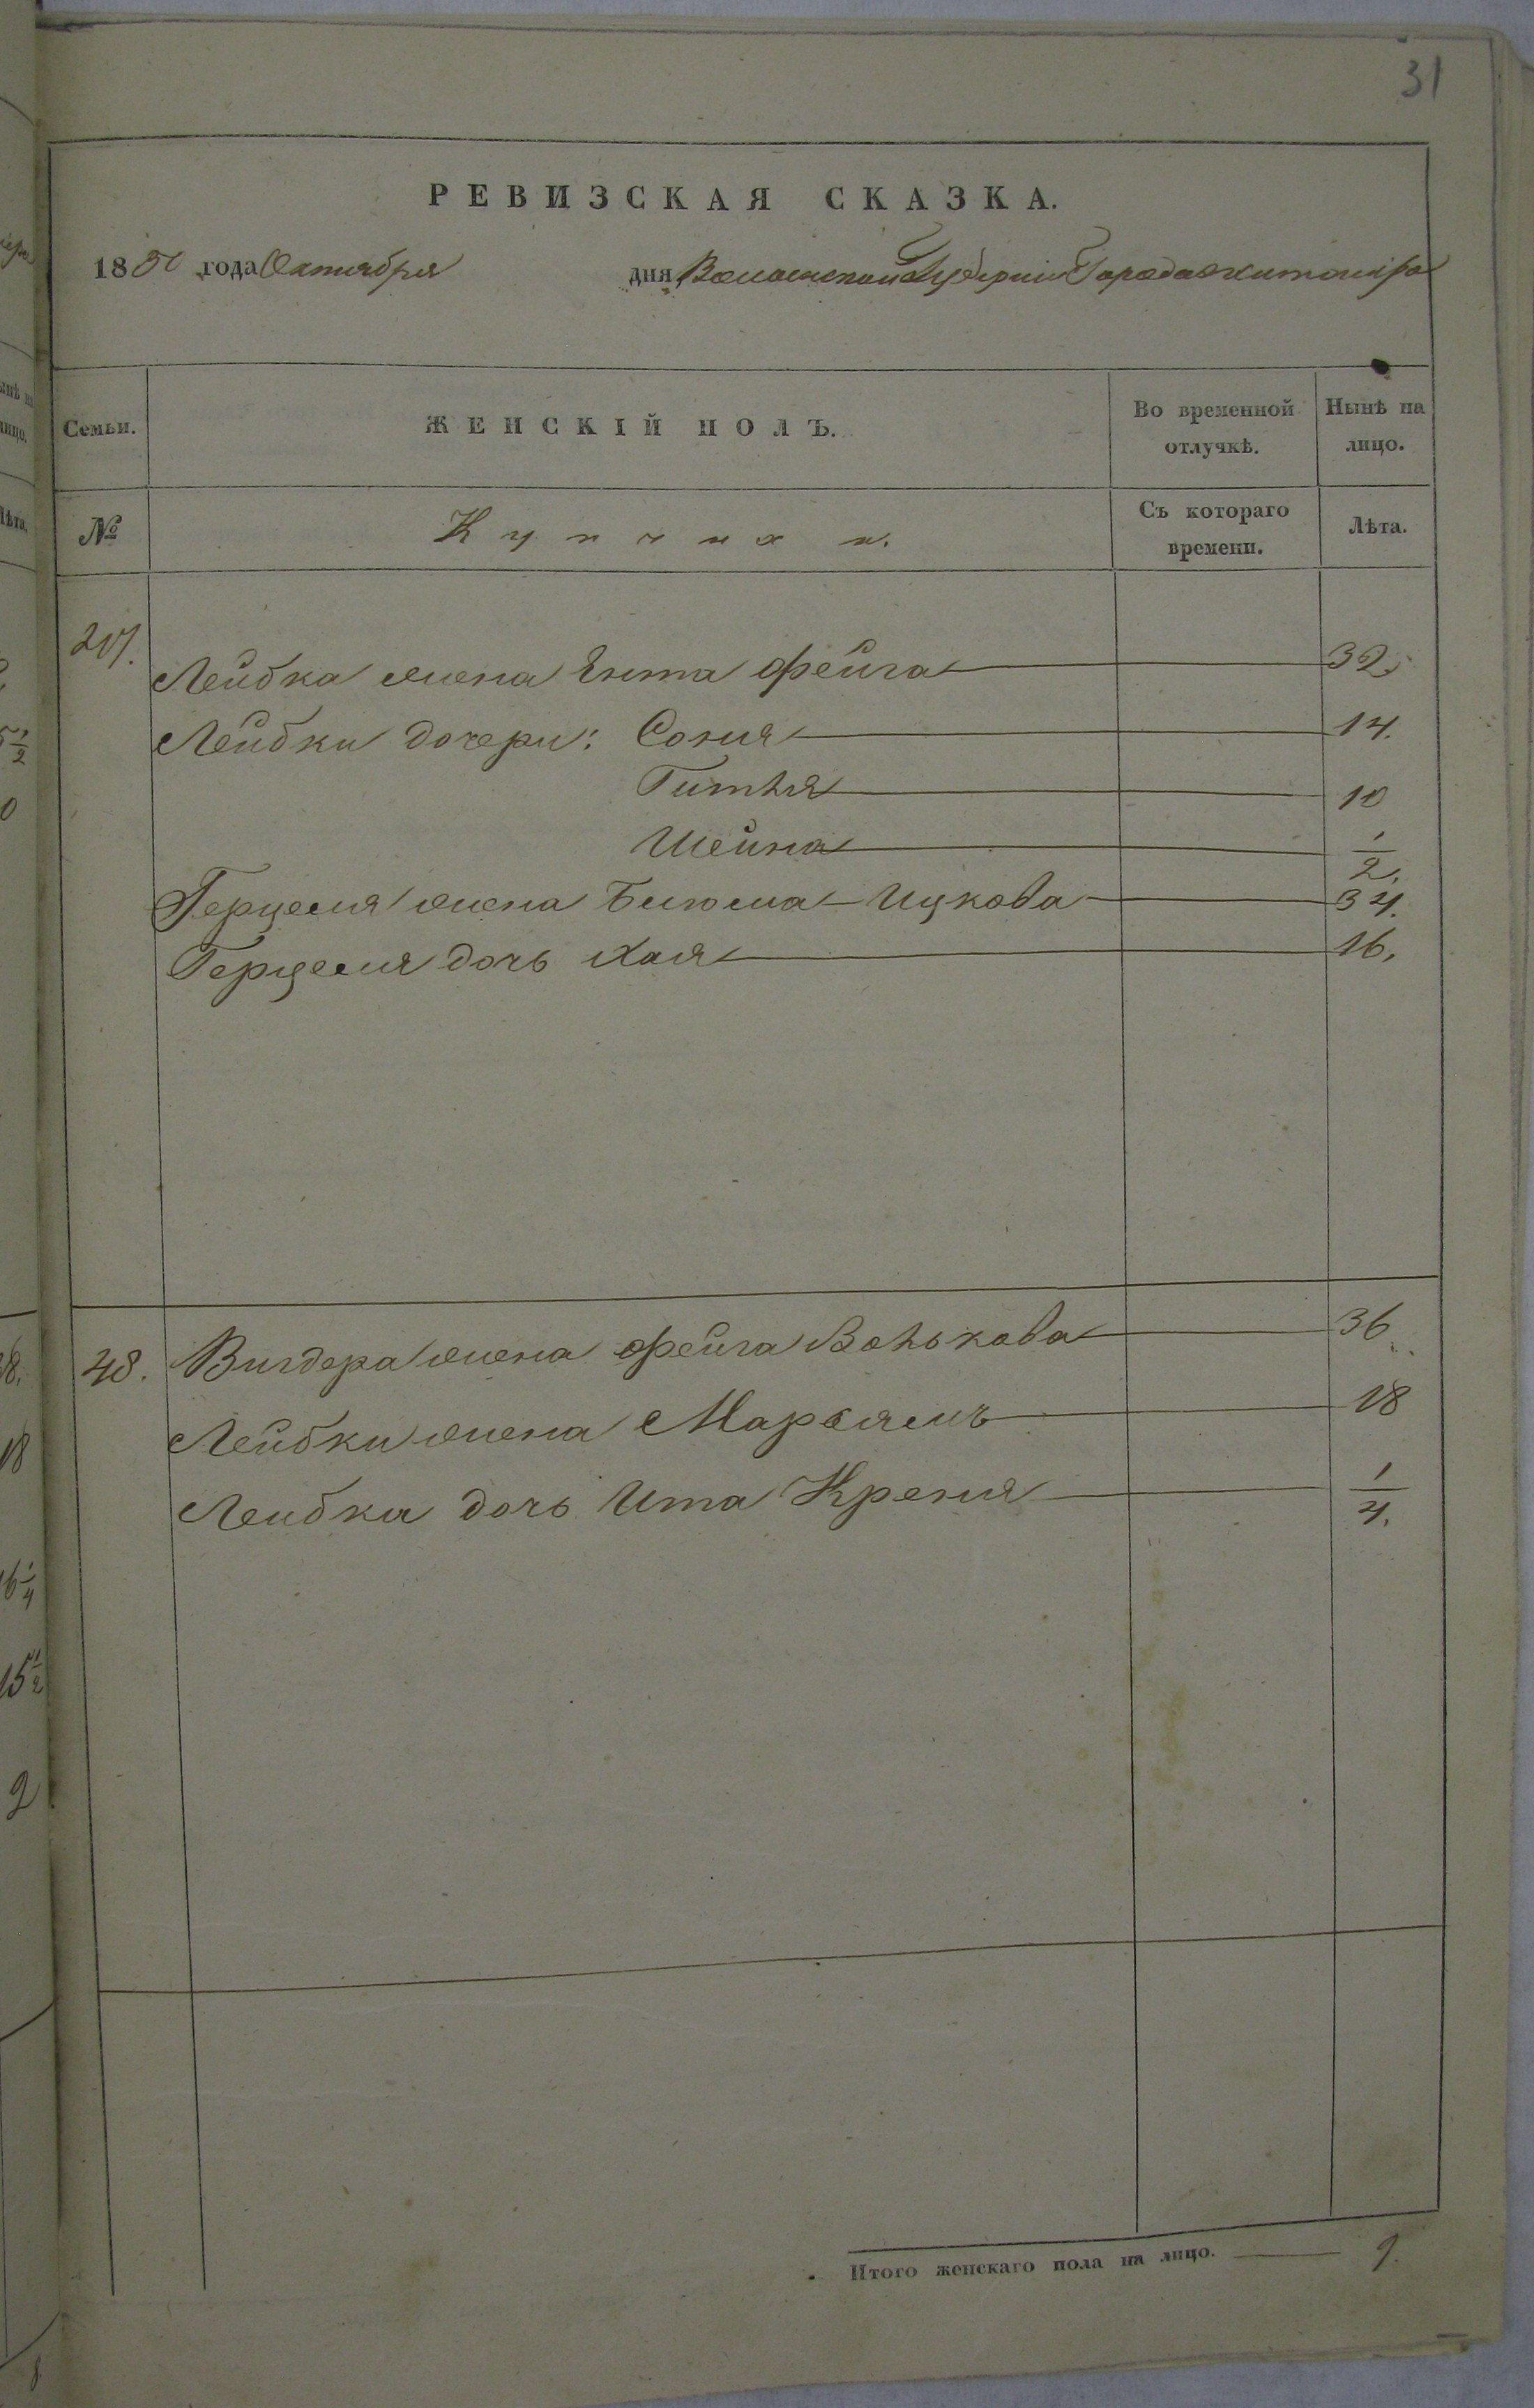 31
РЕВИЗСКАЯ СКАЗКА.
1850 года Октября дня Волынской Губерніи Города Житомира
Семьи. ЖЕНСКІЙ ПОЛЪ. Во временной отлучкѣ. Нынѣ на лицо.
№ Купчихи. Съ котораго времени. Лѣта.
Лейбка жена Ента Фейга 32
Лейбки дочери: Сония 14.
Гитля 10
Шейна 1/2.
Герцеля жена Ицкова 34.
Герцеля дочь Хая 16.
48. Вигдера жена Фейга Волькова 36
Лейбки жена Марьямъ 18
Лейбки дочь Ита Креня 1/4.
Итого женскаго пола на лицо. 9.